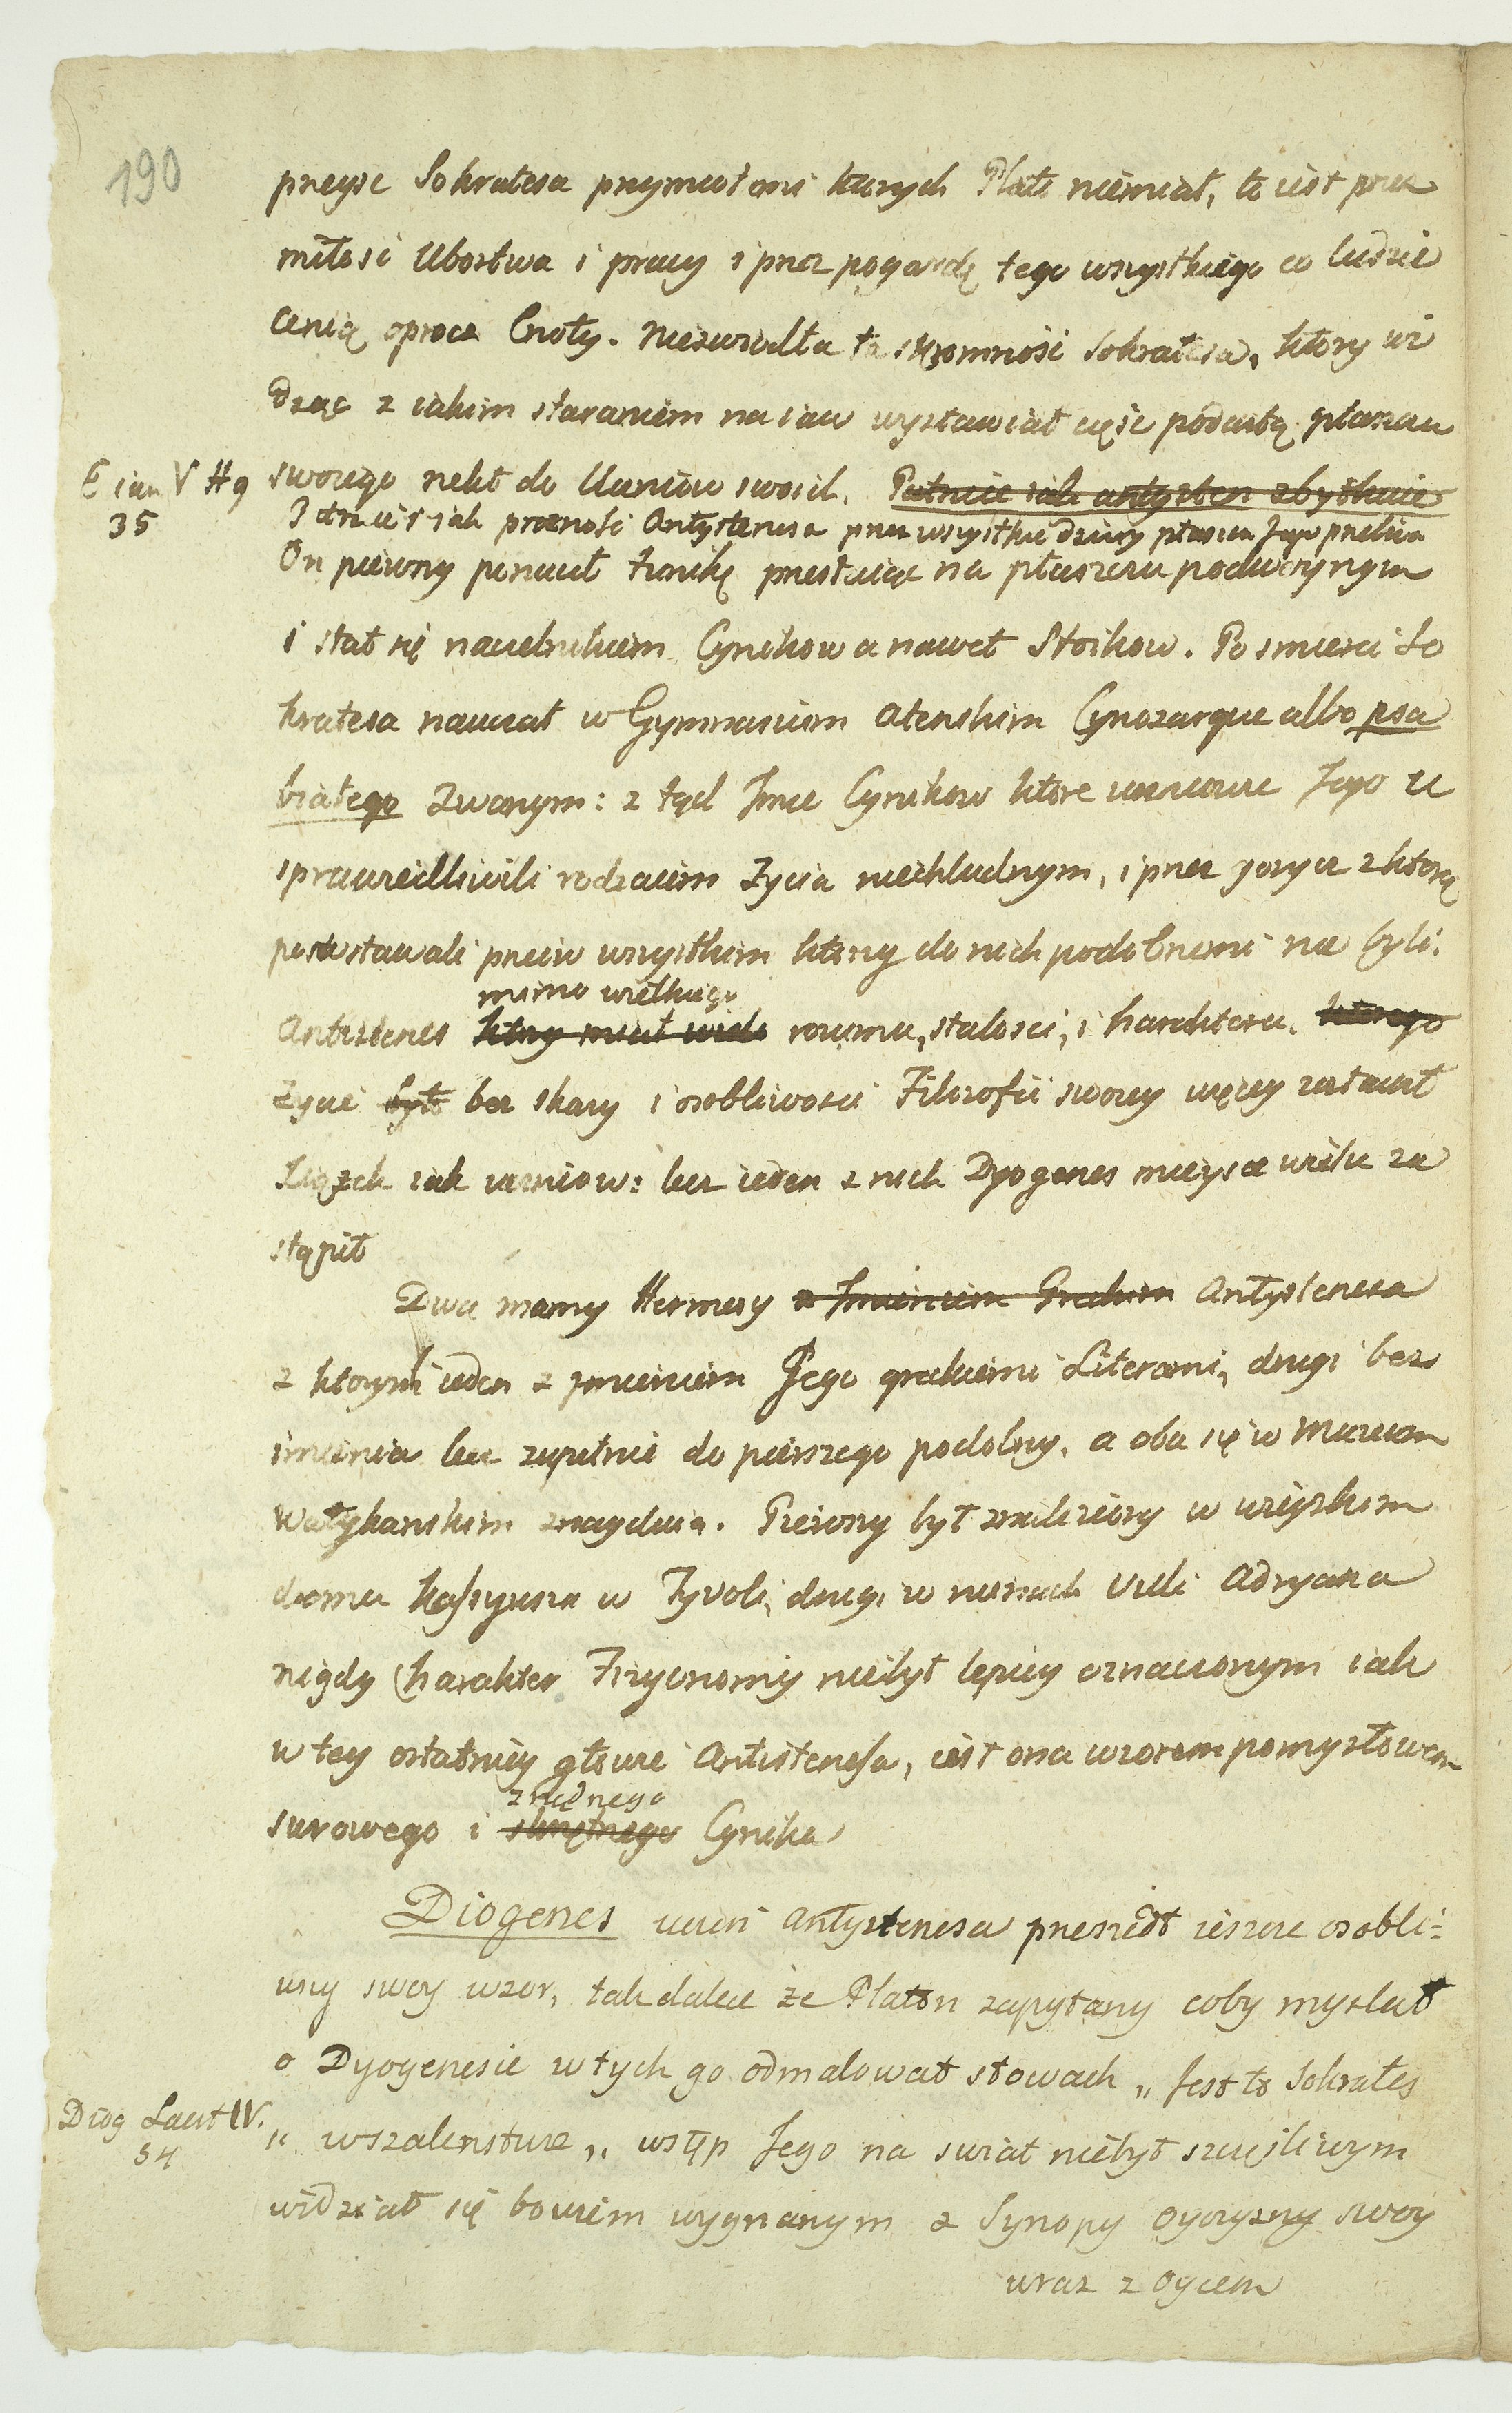 190
przeysc Sokratesa przymiotami ktorych Plato niemiał, to iest przez
miłosc Ubostwa i pracy i przez pogardę tego wszystkiego co ludzie
cenią oprocz Cnoty. Niezwiodła ta skromnosc Sokratesa, ktory wi
dząc z iakim staraniem na iaw wystawiał częsc podartą płaszcza
E ian V H 9
35
swoiego rzekł do Uczniow swoich. Patrzcie iak antysten zbytkuie
Patrzcie iak prozność Antystenesa przez wszystkie dziury płaszcza Jego przebiia
On pierwszy porzucił tunikę przestaiąc na płaszczu podwoynym
i stał się naczelnikiem Cynikow a nawet Stoikow. Po smierci So
kratesa nauczał w Gymnasium atenskim Cynozarque albo psa
białego zwanym: z tąd Imie Cynikow ktore uczniowie Jego u
sprawiedliwili rodzaiem życia niechludnym, i przez gorycz z ktorą
powstawali przeciw wszystkim ktorzy do nich podobnemi nie byli.
mimo wielkiego
Antistenes ktory miał wiele rozumu, stałosci, i harakteru. ktorego
życie było bez skazy i osobliwosci Filozofii swoiey więcey zostawił
Xiążek iak uczniow: lecz ieden z nich Dyogenes mieysce wielu za
stąpił
Dwa mamy Hermesy z Imieniem Greckim Antystenesa
z ktorych ieden z imieniem Jego greckiemi Literami, drugi bez
imienia lecz zupełnie do pierszego podobny, a oba się w Muzeum
Watykanskim znayduią. Pierwszy był znaleziony w wieyskim
domu Kassyusza w Tyvoli, drugi w ruinach Villi Adryana
nigdy Charakter Fizyonomiy niebył lepiey oznaczonym iak
w tey ostatniey głowie Antistenesa, iest ona wzorem pomysłowem
zrzędnego
surowego i skrzętnego Cynika
Diogenes uczeń Antystenesa przeszedł ieszcze osobli=
wszy swoy wzor, tak dalece że Platon zapytany coby myslał
o Dyogenesie w tych go odmalował słowach „ Jest to Sokrates
Diog Laert IV.
54
„ w szalenstwie „ wstęp Jego na swiat niebył szczęśliwym
widział się bowiem wygnanym z Synopy oyczyzny swoiy
wraz z oycem